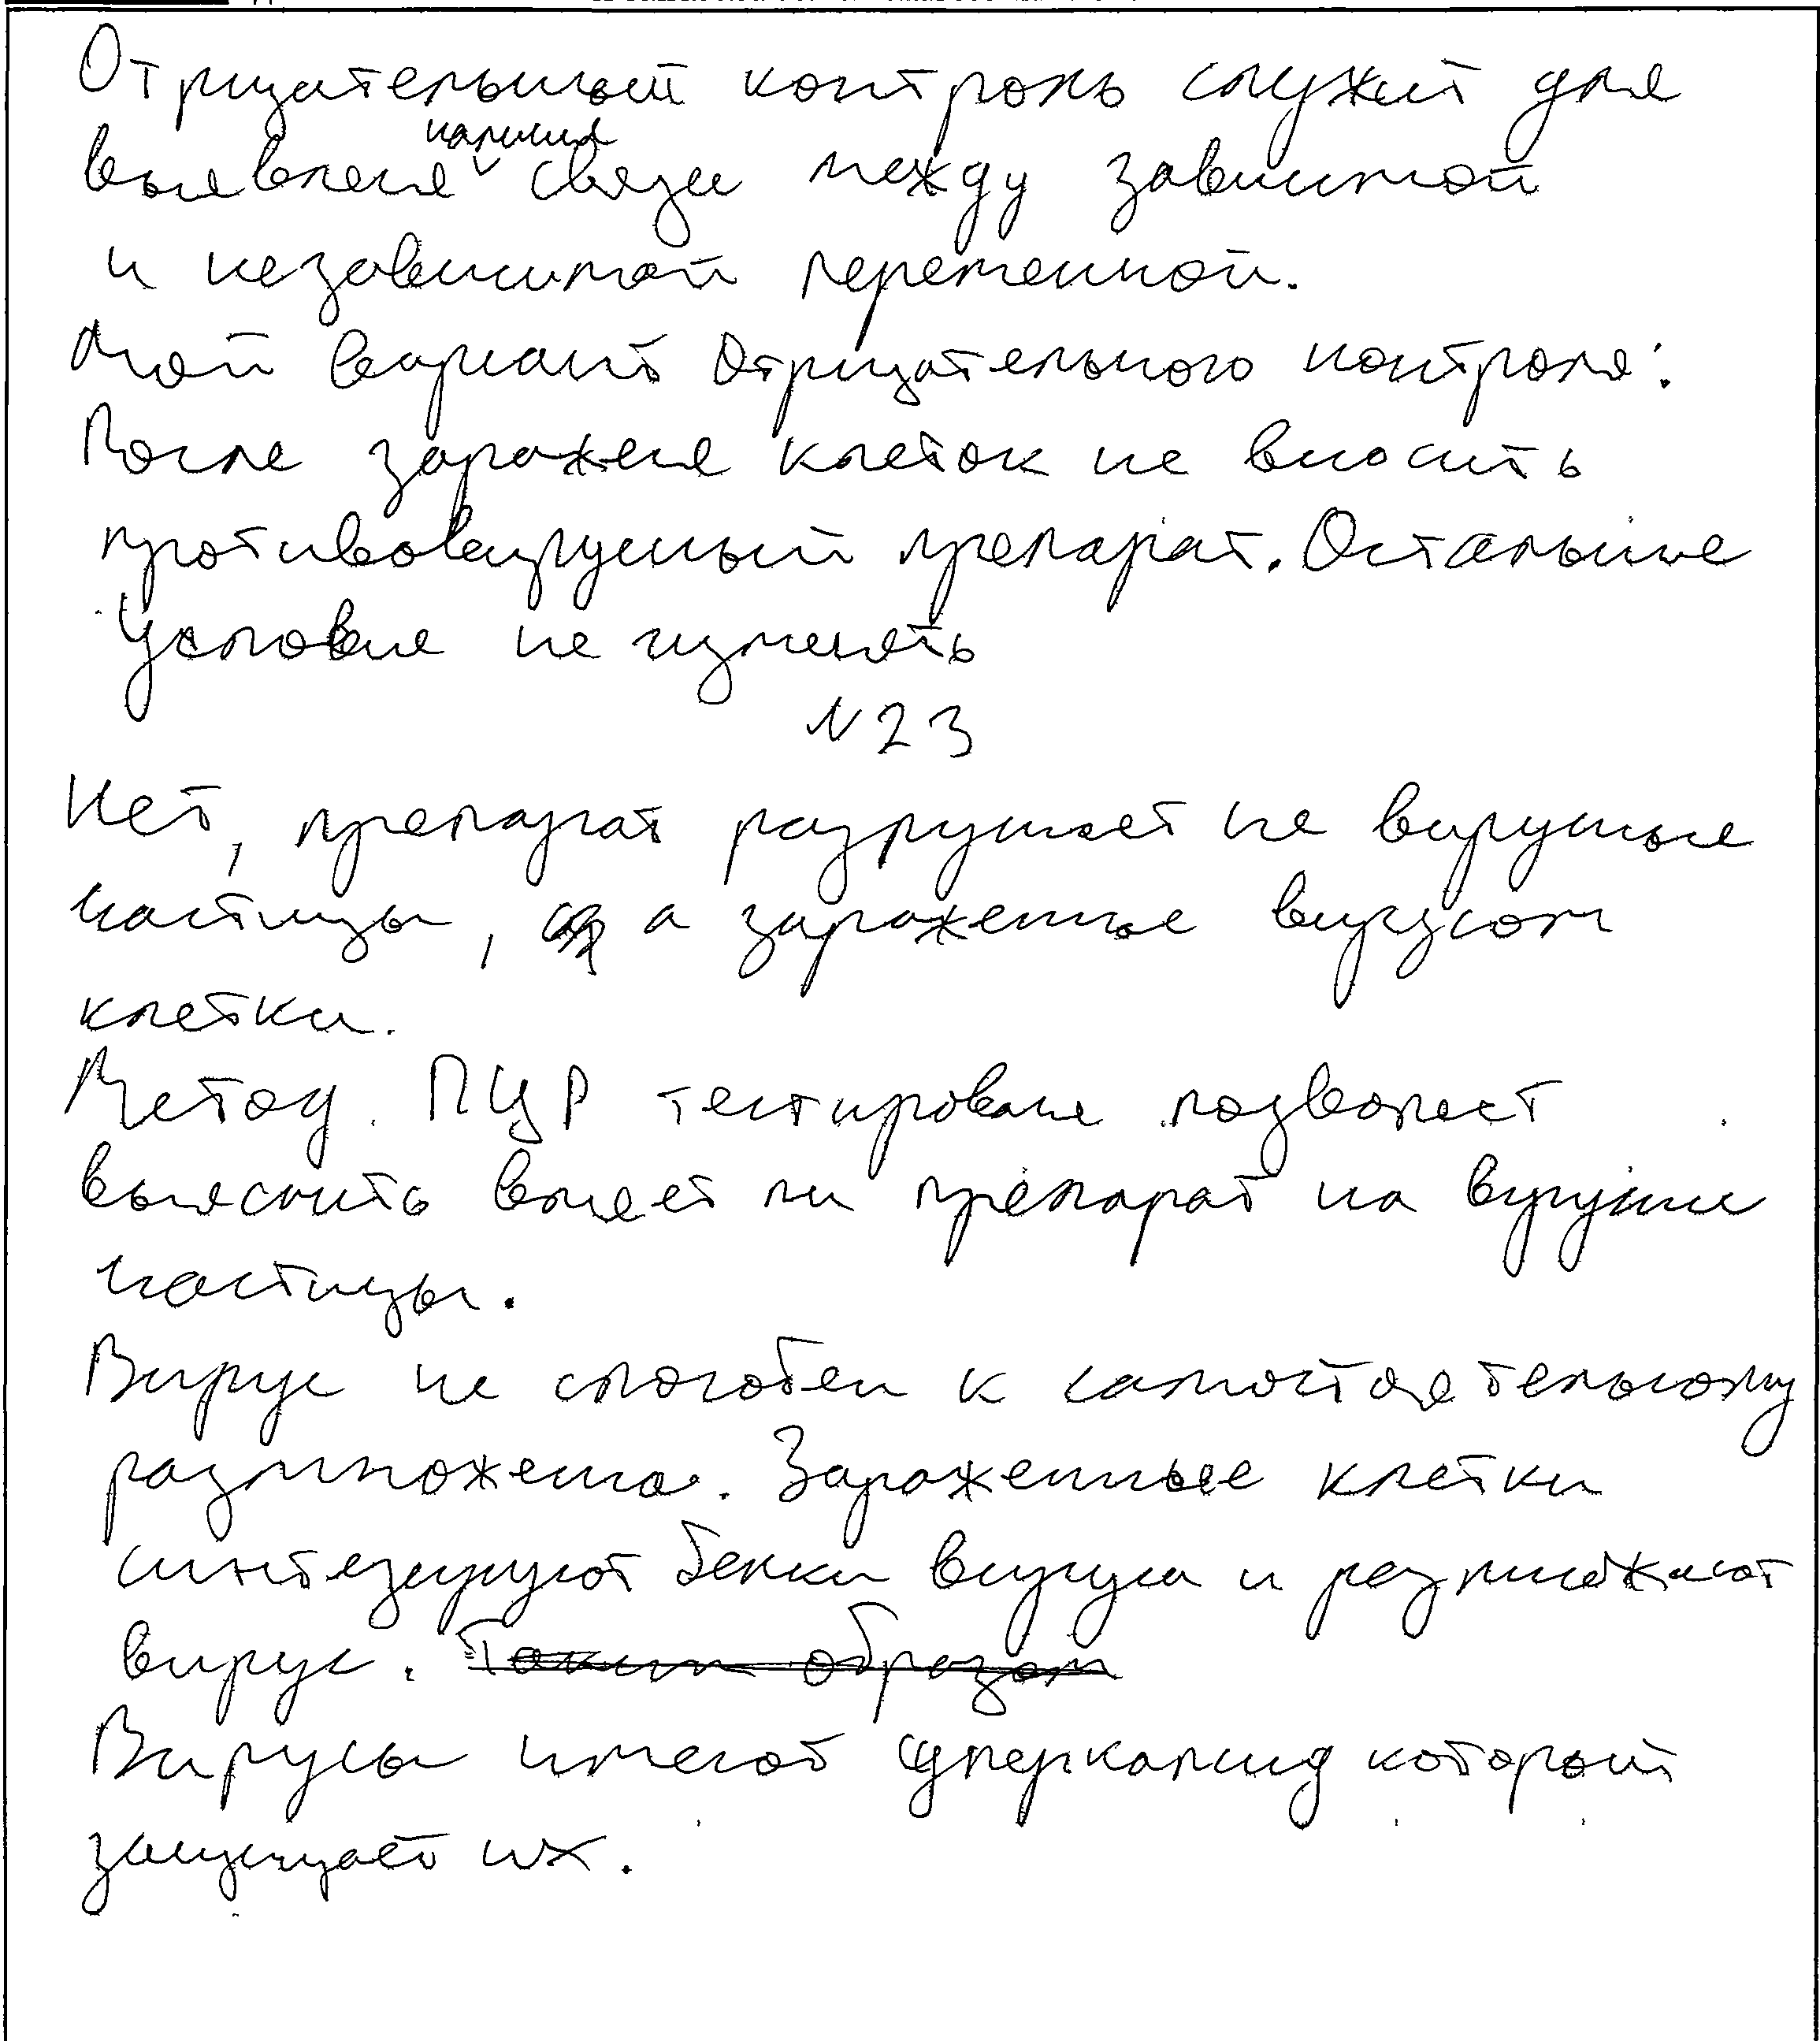 Отрицательный контроль служит для
выявления наличия связи между зависимой
и независимой переменной.
Мой вариант отрицательного контроля:
После заражения клеток не вносить
противовирусный препарат. Остальные
условия не изменять
N23
Нет, препарат разрушает не вирусные
частицы, а зараженные вирусом
клетки.
Метод ПЦР тестирования позволяет
выяснить влияет ли препарат на вирусные
частицы.
Вирус не способен к самостоятельному
размножению. Зараженные клетки
синтезируют белки вируса и размножают
вирус. Таким образом
Вирусы имеют суперкапсид который
защищает их.